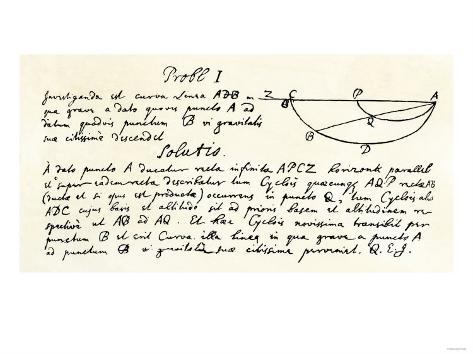 Probl I
Investiganda est curva Linea ADB in
qua grave a dato quovis puncto A ad
datum quodvis punctum B vi gravitatis
suæ citissime descendet
Z C P A
B Q
D
Solutio.
A dato puncto A ducatur recta infinita APCZ horizonti parallela
et super eadem recta describatur tum Cyclois quæcunque AQP rectæ AB
(ducta et si opus est producta) occurrens in puncto Q, tum Cyclois alia
ADC cujus basis et altitudo sit ad prioris basem et altitudinem re
spective ut AB ad AQ. Et hæc Cyclois novissima transibit per
punctum B et erit Curva illa linea in qua grave a puncto A
ad punctum B vi gravitatis suæ citissime perveniet. Q.E.I.